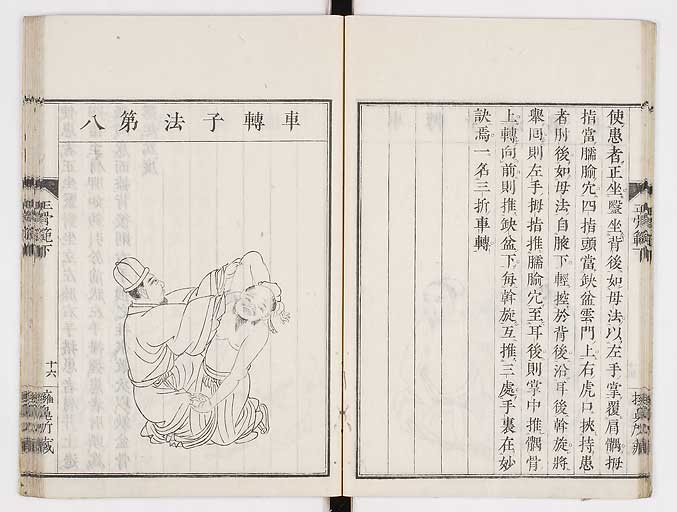 使患者正坐毉坐背後如母法以左手掌覆肩髃拇
指當臑腧穴四指頭當缺盆雲門上右虎口挾持患
者肘後如母法自腋下輕控於背後沿耳後斡旋將
舉回則左手拇指推臑腧穴至耳後則掌中推髃骨
上轉向前則推缺盆下每斡旋互推三處手裏在妙
訣焉一名三折車轉
車轉子法第八
正骨範下
十六